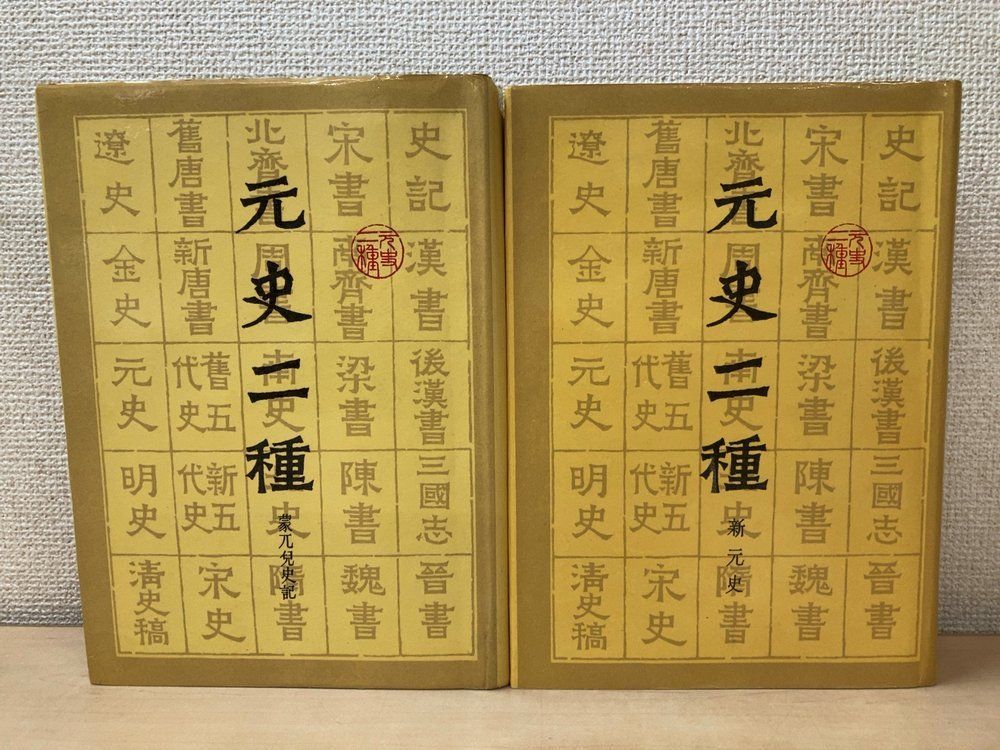 元史二種
蒙兀兒史記
元史二種
史記
漢書
後漢書
三國志
晉書
宋書
南齊書
梁書
陳書
魏書
北齊書
周書
南史
史
隋書
舊唐書
新唐書
舊五代史
新五代史
宋史
遼史
金史
元史
明史
清史稿
元史二種
新元史
元史二種
史記
漢書
後漢書
三國志
晉書
宋書
南齊書
梁書
陳書
魏書
北齊書
周書
南史
史
隋書
舊唐書
新唐書
舊五代史
新五代史
宋史
遼史
金史
元史
明史
清史稿